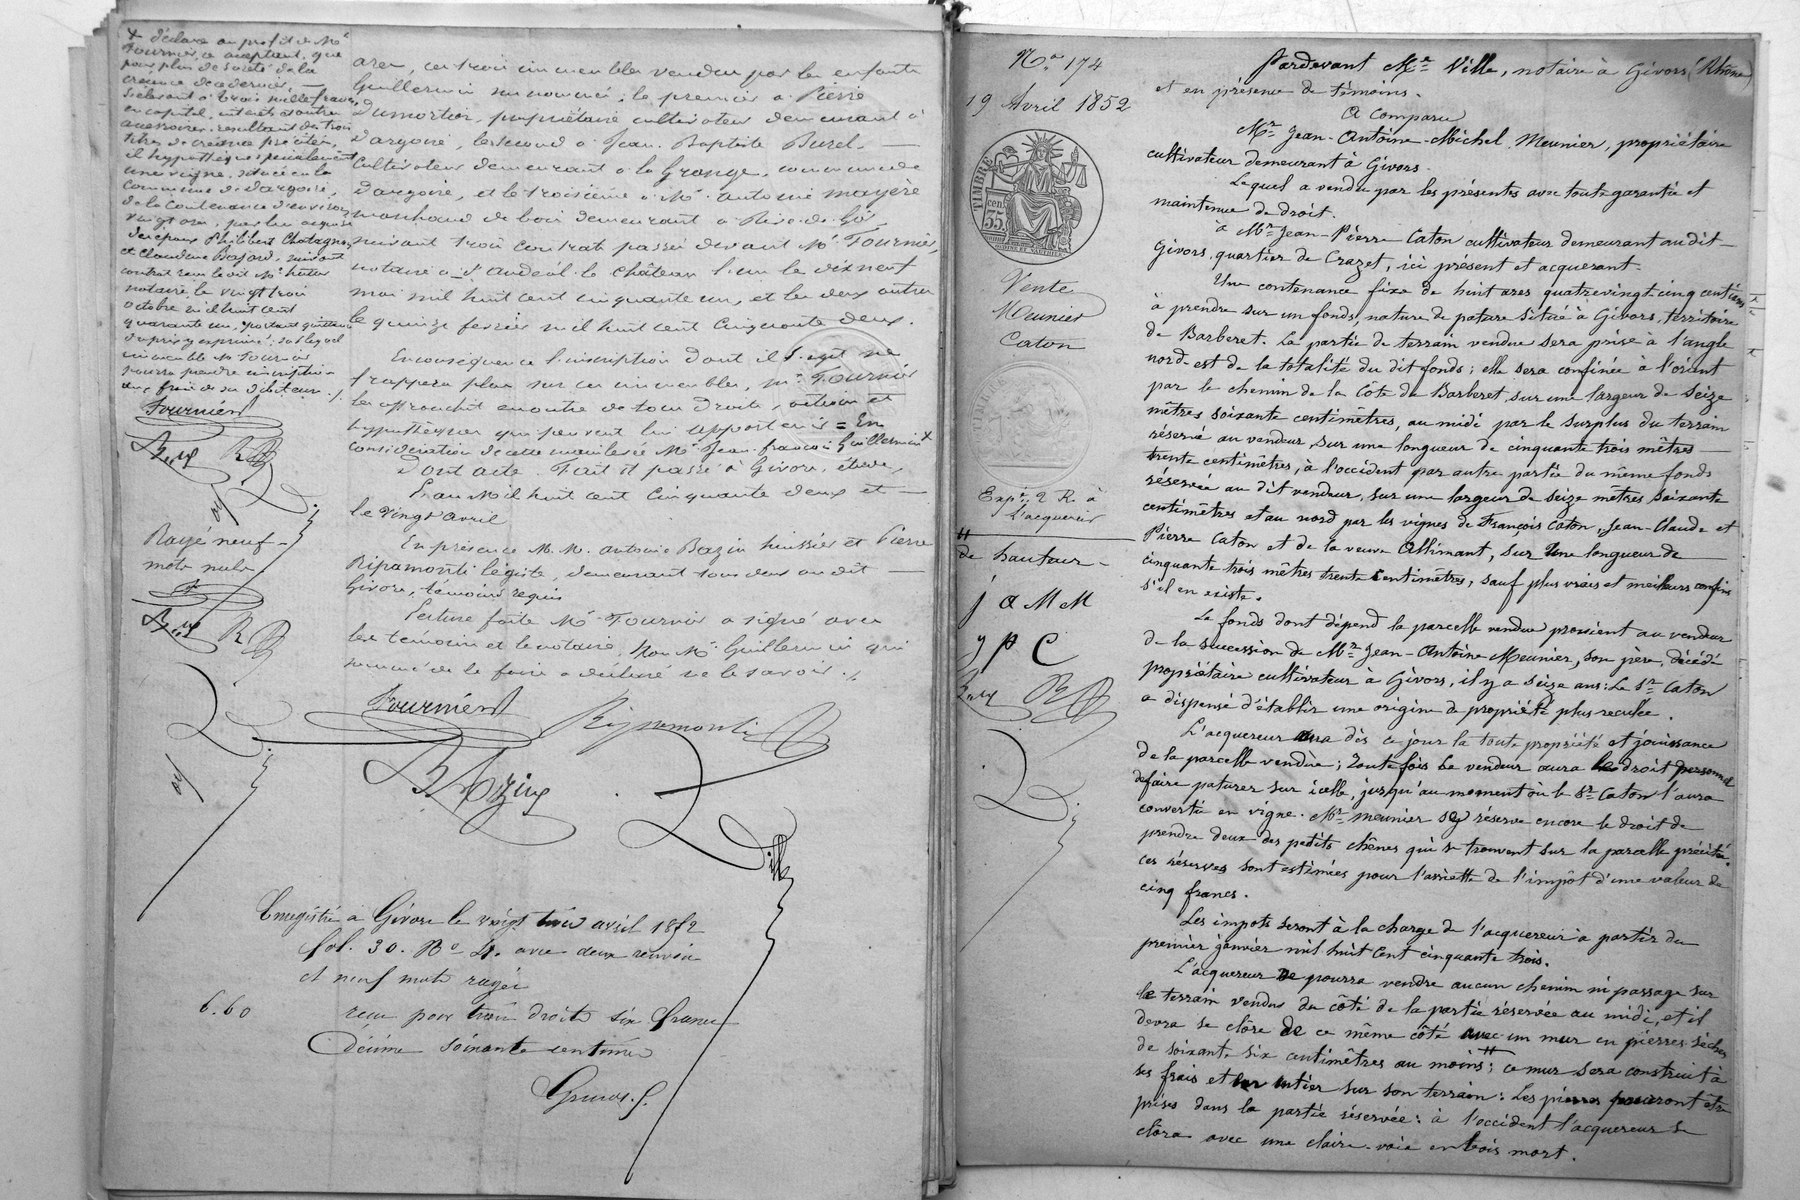 + déclare au profit de Mr
Fournier, ce acceptant, que
pour plus de sureté de la
créance de ce dernier,
s'élevant à trois mille francs
en capital, intérêts et autres
accessoires, résultant des trois
titres de créance précités,
il hypothèque spécialement
une vigne, située en la
commune de Dargoire,
de la contenance d'environ
vingt ares, par lui acquise
des époux Philibert Chatagnon
et Claudine Bajard, suivant
contrat reçu le dit Me
notaire, le vingt trois
octobre mil huit cent
quarante un, portant quittance
du prix y exprimé; sur lequel
immeuble Mr Fournier
pourra prendre inscription
aux frais de son débiteur ./.
Fournier
Rayé neuf
mots nuls
ares, ces trois immeubles vendus par les enfants
Guillermin sus nommés; le premier à Pierre
Dumortier, propriétaire cultivateur demeurant à
Dargoire, le second à Jean Baptiste Burel
cultivateur demeurant à la Grange, commune de
Dargoire, et le troisième à Mr Antoine Mayère
marchand de bois demeurant à Rive de Gier
suivant trois contrats passés devant Me Fournier,
notaire à St Andéol le château l'un le dix neuf
mai mil huit cent cinquante un, et les deux autres
le quinze février mil huit cent cinquante deux.
En conséquence l'inscription dont il s'agit ne
frappera plus sur ces immeubles, Mr Fournier
les affranchit en outre de tous droits, actions et
hypothèques qui peuvent lui appartenir = En
considération de cette mainlevée Mr Jean françois Guillermin +
Dont acte Fait et passé à Givors, étude,
L'an Mil huit cent cinquante deux et
le vingt avril
En présence M. M. Antoine Bazin huissier et Pierre
Ripamonti légiste, demeurant tous deux au dit
Givors, témoins requis
Lecture faite Mr Fournier a signé avec
les témoins et le notaire, non Mr Guillermin qui
sommé de le faire a déclaré ne le savoir ./.
Fournier Ripamonti
Bazin
Ville
Enregistré à Givors le vingt trois avril 1852
fol. 30. Ro 4. avec deux renvois
et neuf mots rayés
6.60 reçu pour trois droits six francs
Décime soixante centimes
No 174
19 Avril 1852
TIMBRE
35 cen
Vente
Meunier
Caton
Expn 2 R. à
L'acquereur
# de hauteur
j a M M
j p C
Pardevant Me Ville, notaire à Givors (Rhône)
et en présence de témoins.
A Comparu
Mr Jean-Antoine-Michel Meunier, propriétaire
cultivateur demeurant à Givors.
Lequel a vendu par les présentes avec toute garantie et
maintenue de droit.
à Mr Jean-Pierre Caton cultivateur demeurant au dit
Givors, quartier de Crazet, ici présent et acquerant.
Une contenance fixe de huit ares quatrevingt-cinq centiares
à prendre sur un fonds, nature de pature situé à Givors, territoire
de Barberet. La partie de terrain vendue sera prise à l'angle
nord-est de la totalité du dit fonds; elle sera confinée à l'orient
par le chemin de la Côte de Barberet, sur une largeur de seize
mêtres soixante centimêtres, au midi par le surplus du terrain
réservé au vendeur, sur une longueur de cinquante trois mêtres
trente centimêtres, à l'occident par autre partie du même fonds
réservée au dit vendeur, sur une largeur de seize mêtres soixante
centimêtres et au nord par les vignes de François Caton, Jean-Claude et
Pierre Caton et de la veuve Allimant, sur une longueur de
cinquante trois mêtres trente Centimêtres, sauf plus vrais et meilleurs confins
s'il en existe.
Le fonds dont dépend la parcelle vendue provient au vendeur
de la succession de Mr Jean-Antoine Meunier, son père, décédé
propriétaire cultivateur à Givors, il y a seize ans: Le Sr Caton
a dispensé d'établir une origine de propriété plus reculée.
L'acquereur aura dès ce jour la toute propriété et jouissance
de la parcelle vendue; Toutefois le vendeur aura le droit personnel
de faire paturer sur icelle, jusqu'au moment où le Sr Caton l'aura
converti en vigne. Mr Meunier se réserve encore le droit de
prendre deux des petits chênes qui se trouvent sur la parcelle précitée.
ces réserves sont estimées pour l'assiette de l'impôt d'une valeur de
cinq francs.
Les impots seront à la charge de l'acquereur à partir du
premier janvier mil huit Cent cinquante trois.
L'acquereur ne pourra vendre aucun chemin ni passage sur
le terrain vendu du côté de la partie réservée au midi, et il
devra se clôre de ce même côté avec un mur en pierres sèches
de soixante six centimêtres au moins #; ce mur sera construit à
ses frais et en entier sur son terrain: Les pierres pourront être
prises dans la partie réservée: à l'occident l'acquereur se
clôra avec une claire-voie en bois mort.